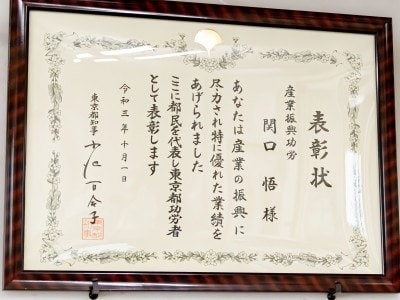 表彰状
産業振興功労
関口悟様
あなたは産業の振興に
尽力され特に優れた業績を
あげられました
ここに都民を代表し東京都功労者
として表彰します
令和三年十月一日
東京都知事 小池百合子